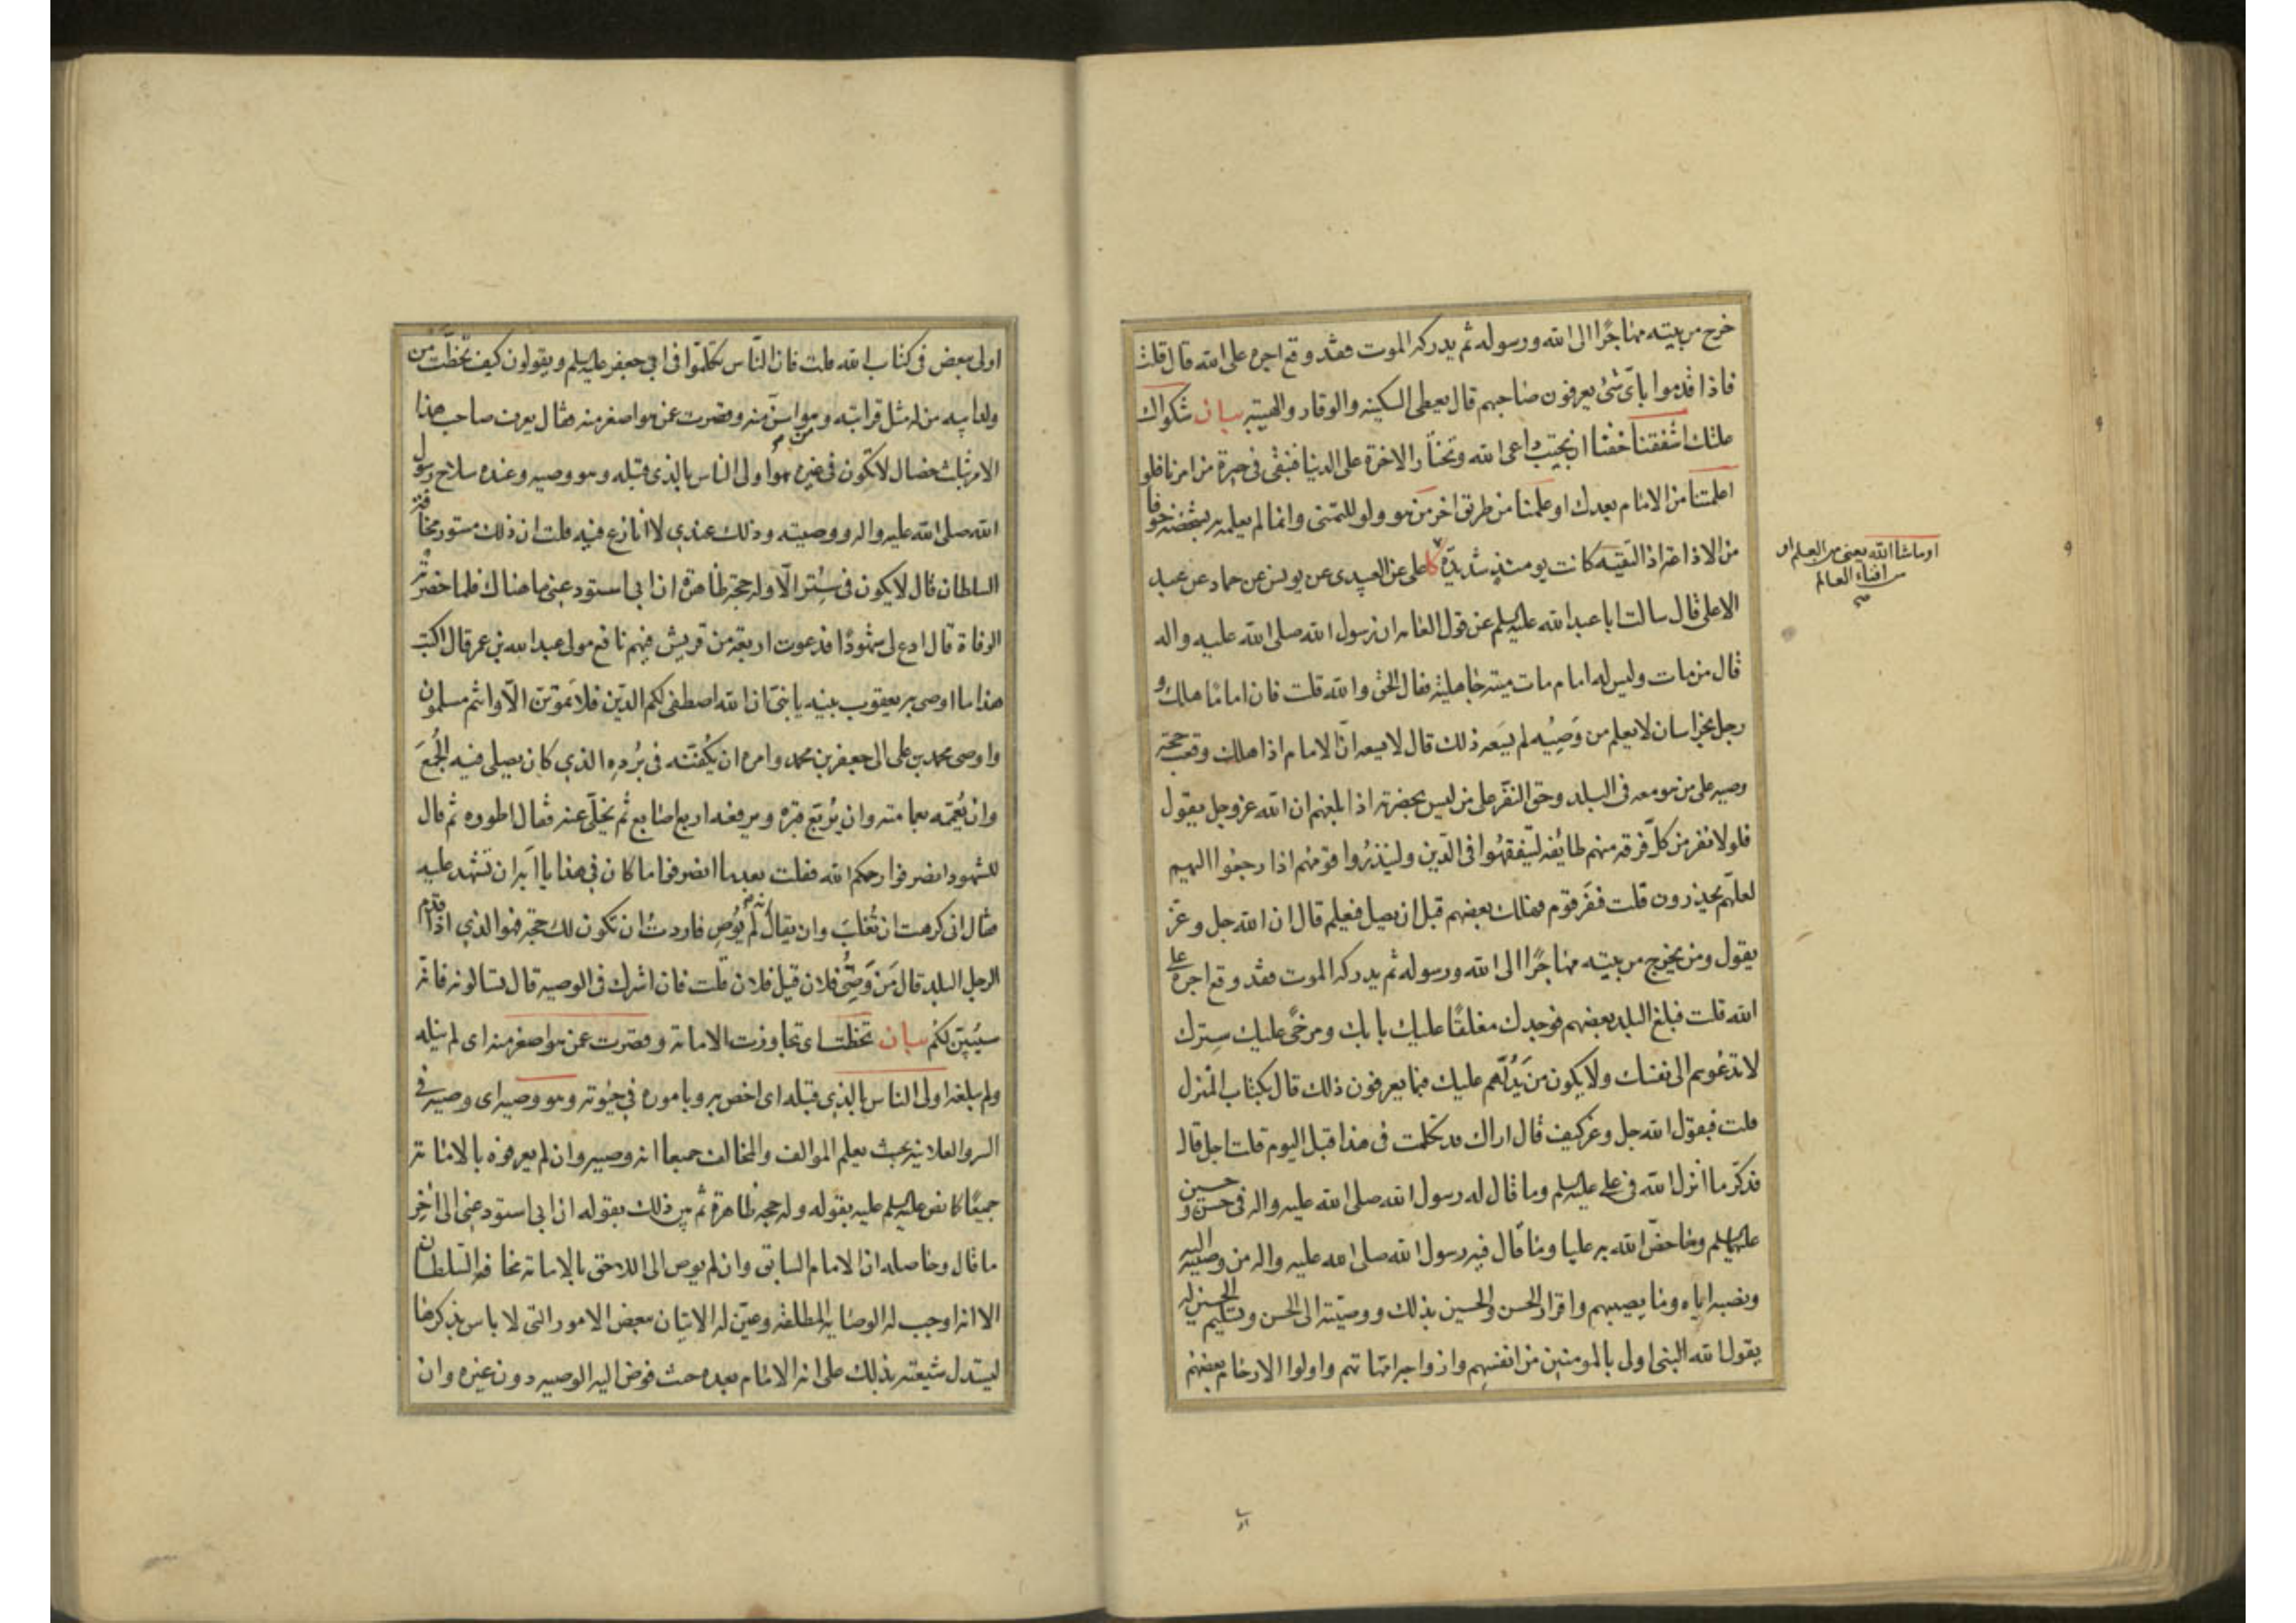 خرج من بيته مهاجرًا الى الله ورسوله ثم يدركه الموت فقد وقع اجره على الله قال قلت
فاذا قدموا باىّ شئ يعرفون صاحبهم قال يعطى السكينه والوقار والهيبته بيان شكواك
علتك اشفقنا خفنا ان تجيب داعى الله وتختار الاخرة على الدنيا فنبقى فى حيرة من امرنا فلو
اعلمتنا من الامام بعدك او علمنا من طريق اخر من هو ولو للتمنى وانما لم يعلمه بشخصه خوفا
من الاذاعة اذ التقيه كانت يومئذ شديدة كا على عن العبيدى عن يونس عن حماد عن عبد
الاعلى قال سالت ابا عبد الله عليه السلم عن قول العامه ان رسول الله صلى الله عليه واله
قال من مات وليس له امام مات ميتة جاهلية فقال الحق والله قلت فان امامًا هلك و
رجل بخراسان لا يعلم من وَصِيُه لم يسَعه ذلك قال لا يسعه انّ الامام اذا هلك وقعت حجة
وصيه على من هو معه فى البلد وحق النفر على من ليس بحضرته اذا بلغهم ان الله عز وجل يقول
فلولا نفر من كلّ فرقه منهم طائفه ليتفقهُوا فى الدّين ولينذرُوا قومهم اذا رجعُوا اليهم
لعلّهم يحذرون قلت فنفَر قوم فهلك بعضهم قبل ان يصل فيعلم قال ان الله جل وعزّ
يقول ومن يخرج من بيته مهاجرًا الى الله ورسوله ثم يدركه الموت فقد وقع اجره على
الله قلت فبلغ البلد بعضهم فوجدك مغلقًا عليك بابك ومرخًى عليك سِترك
لا تدعُوهم الى نفسك ولا يكون من يَدُلّهم عليك فبما يعرفون ذلك قال بكتاب الله المنزل
قلت فيقول الله جل وعز كيف قال اراك قد تكلمت فى هذا قبل اليوم قلت اجل قال
فذكّر ما انزل الله فى على عليه السلم وما قال له رسول الله صلى الله عليه واله فى حسن و حسين
عليهما السلم وما خصّ الله به عليا وما قال فيه رسول الله صلى الله عليه واله من وصيته اليه
ونصبه اياه وما يصيبهم واقرار الحسن والحسين بذلك ووصيّته الى الحسن وتسليم الحسين له
يقول الله النبى اولى بالمومنين من انفسهم وازواجه امهاتهم واولوا الارحام بعضهم
او ماشا الله يعنى من العلم او
افناء العالم
اولى ببعض فى كتاب الله قلت فان النّاس تكلّموا فى ابى جعفر عليه السلم ويقولون كيف تخطّت من
ولد ابيه من له مثل قرابته وهو اسنّ منه وقصرت عمن هو اصغر منه فقال يعرف صاحب هذا
الامر بثلث خصال لا تكون فى غيره هو اولى الناس بالذى قبله وهو وصيه وعنده سلاح رسول
الله صلى الله عليه واله ووصيته وذلك عندى لا انازع فيه قلت ان ذلك مستور مخافة
السلطان قال لا يكون فى سِتر الّا وله حجة ظاهرة ان ابى استودعنى ما هناك فلما حضرته
الوفاة قال ادع لى شهُودًا فدعوت اربعة من قريش فيهم نافع مولى عبد الله بن عمر قال اكتب
هذا ما اوصى به يعقوب بنيه يا بنىّ ان الله اصطفى لكم الدّين فلا تَموتنّ الّا وانتم مسلمون
واوصى محمد بن على الى جعفر بن محمد وامره ان يكفنه فى بُرده الذى كان يصلى فيه الجُمعَ
وان يُعممه بعمامته وان يُربّع قبره ويرفعه اربع اصابع ثم يخلّى عنه فقال اطووه ثم قال
للشهود انصرفوا رحمكم الله فقلت بعد ما انصرفوا ما كان فى هذا يا ابَه ان تشهد عليه
فقال انى كرهت ان تُغلبَ وان يقال انه لم يُوص فاردتُ ان تكون لك حجة فهو الذى اذا قدم
الرجل البلد قال مَن وَصِىُّ فلان قيل فلان قلت فان اشرك فى الوصيه قال تسالونه فانه
سيُبيّن لكم بيان تخطت اى تجاوزت الامامة وقصرت عمن هو اصغر منه اى لم ينله
ولم يبلغه اولى الناس بالذى قبله اى اخص به وباموره فى حيوته وهو وصيه اى وصيه فى
السر والعلانيه بحيث يعلم الموالف والمخالف جميعا انه وصيه وان لم يعرفوه بالامامة
جميعًا كما نص عليه السلم عليه بقوله وله حجة ظاهرة ثم بين ذلك بقوله ان ابى استودعنى الى اخِر
ما قال وحاصله ان الامام السابق وان لم يوص الى اللاحق بالامامة مخافة السّلطان
الا انه اوجب له الوصايه المطلقه وعيّن له الاتيان ببعض الامور التى لا باس بذكرها
ليستدل شيعته بذلك على انه الامام بعده حيث فوض اليه الوصيه دون غيره وان